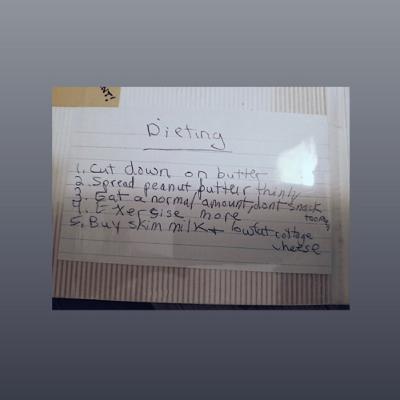 Dieting
1. Cut down on butter
2. Spread peanut butter thinly
3. Eat a normal amount, dont snack
4. Exersise more
5. Buy skim milk + lowfat cottage
cheese